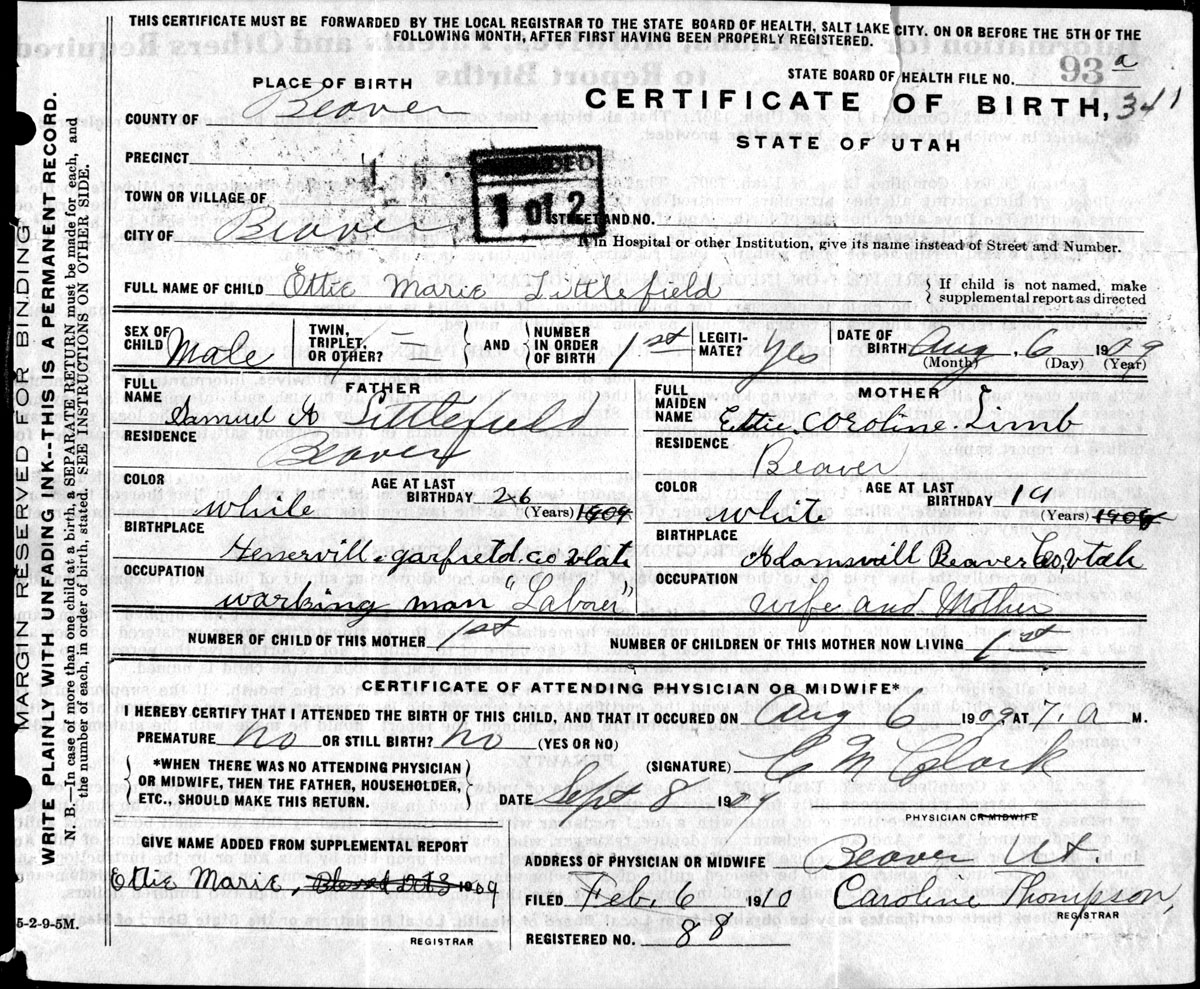 THIS CERTIFICATE MUST BE FORWARDED BY THE LOCAL REGISTRAR TO THE STATE BOARD OF HEALTH, SALT LAKE CITY. ON OR BEFORE THE 5TH OF THE
FOLLOWING MONTH, AFTER FIRST HAVING BEEN PROPERLY REGISTERED.
STATE BOARD OF HEALTH FILE NO. 93 a
PLACE OF BIRTH
CERTIFICATE OF BIRTH, 341
STATE OF UTAH
COUNTY OF Beaver
PRECINCT
TOWN OR VILLAGE OF
1 of 2
STREET AND NO.
CITY OF Beaver
If in Hospital or other Institution, give its name instead of Street and Number.
FULL NAME OF CHILD Ottie Marie Littlefield
If child is not named, make
supplemental report as directed
SEX OF CHILD Male
TWIN, TRIPLET, OR OTHER? —
AND
NUMBER IN ORDER OF BIRTH 1st
LEGITI-MATE? Yes
DATE OF BIRTH Aug. 6 1909
(Month) (Day) (Year)
FATHER
FULL NAME Samuel A Littlefield
RESIDENCE Beaver
COLOR White
AGE AT LAST BIRTHDAY 26 (Years) 1909
BIRTHPLACE
garfield. co
OCCUPATION working man "Laborer"
MOTHER
FULL MAIDEN NAME Ettie Caroline Limb
RESIDENCE Beaver
COLOR White
AGE AT LAST BIRTHDAY 19 (Years) 1909
BIRTHPLACE Adamsvill Beaver Co, Utah
OCCUPATION Wife and Mother
NUMBER OF CHILD OF THIS MOTHER 1st
NUMBER OF CHILDREN OF THIS MOTHER NOW LIVING 1st
CERTIFICATE OF ATTENDING PHYSICIAN OR MIDWIFE*
I HEREBY CERTIFY THAT I ATTENDED THE BIRTH OF THIS CHILD, AND THAT IT OCCURED ON Aug 6 1909 AT 7. a M.
PREMATURE No OR STILL BIRTH? No (YES OR NO)
*WHEN THERE WAS NO ATTENDING PHYSICIAN
OR MIDWIFE, THEN THE FATHER, HOUSEHOLDER,
ETC., SHOULD MAKE THIS RETURN.
(SIGNATURE) C M Clark
DATE Sept 8 1909
PHYSICIAN OR MIDWIFE
GIVE NAME ADDED FROM SUPPLEMENTAL REPORT
Ottie Marie, 1909
REGISTRAR
ADDRESS OF PHYSICIAN OR MIDWIFE Beaver Ut.
FILED Feb. 6 1910 Caroline Thompson,
REGISTRAR
REGISTERED NO. 88
5-2-9-5M.
MARGIN RESERVED FOR BINDING
WRITE PLAINLY WITH UNFADING INK--THIS IS A PERMANENT RECORD.
N. B.—In case of more than one child at a birth, a SEPARATE RETURN must be made for each, and
the number of each, in order of birth, stated. SEE INSTRUCTIONS ON OTHER SIDE.